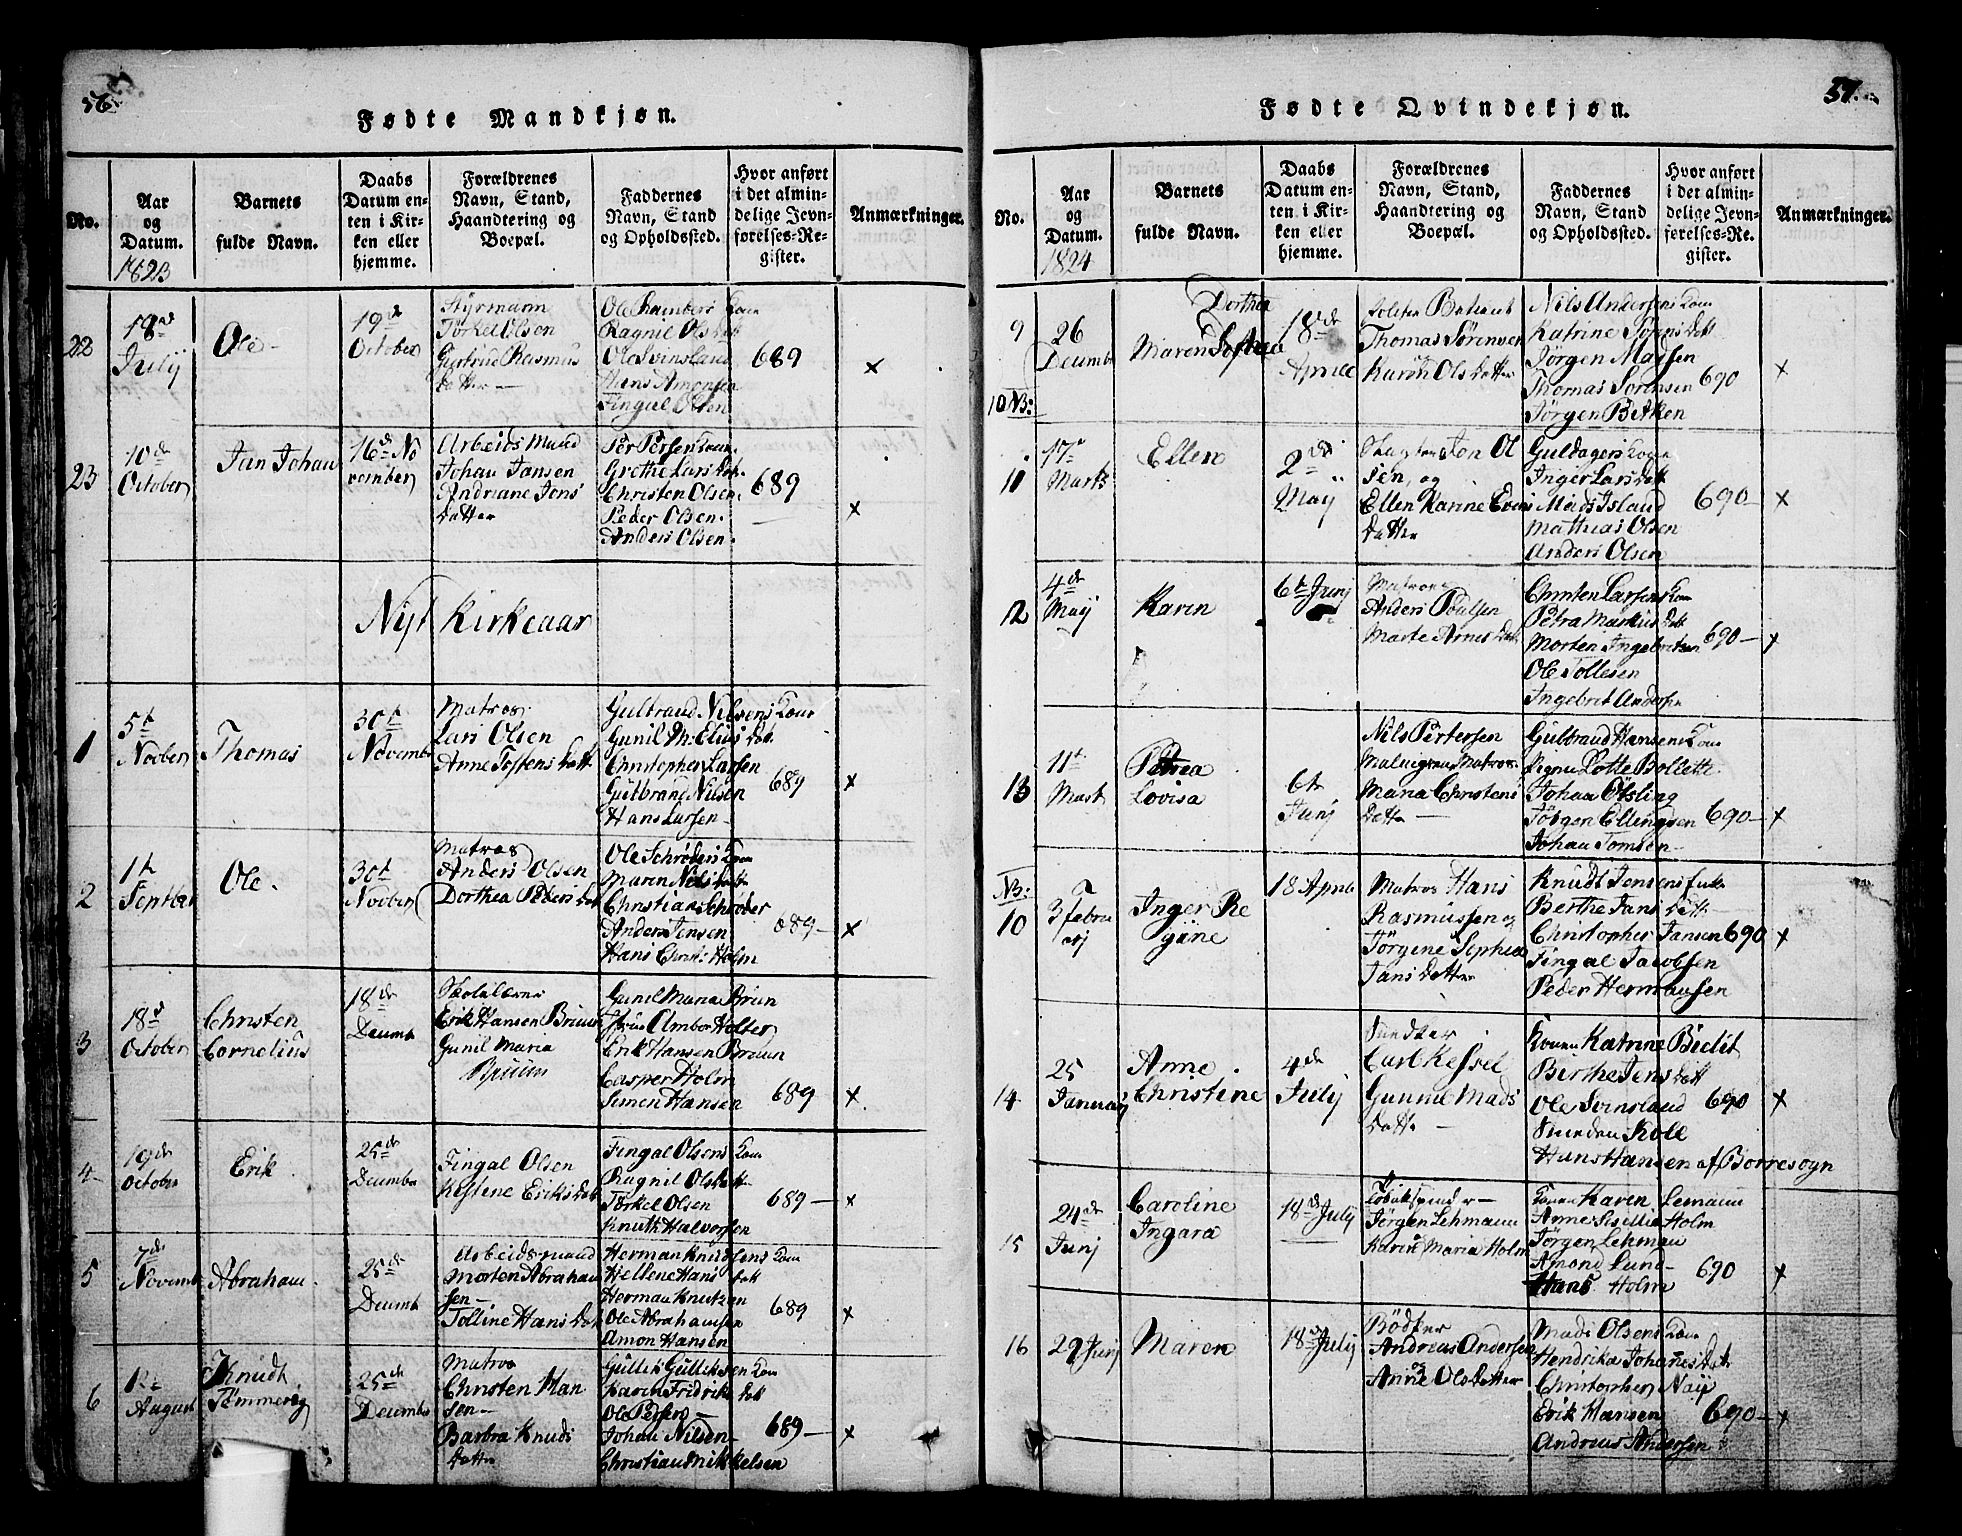 56
Fødte Mandkjøn.
No.
Aar
og
Datum.
1823
Barnets
fulde Navn.
Daabs
Datum en-
ten i Kir-
ken eller
hjemme.
Forældrenes
Navn, Stand,
Haandtering og
Boepæl.
Faddernes
Navn, Stand
og Opholdssted.
Hvor anført
i det almin-
delige Jevn-
førelses-Re-
gister.
Anmærkninger.
22
18d
Julij
Ole
19d
October
Styrmann
Törkel Olsen
Gjertrud Rasmus
datter
Ole Rambers Kone
Ragnil Ols datt
Ole Svinsland
Hans Amonsen
Fingal Olsen
689
x
23
10de
October
Jan Johan
16de No
vember
Arbeids Mand
Johan Jansen
Andriane Jens
Datter
Per Persen Kone
Grethe Lars dat.
Christen Olsen.
Peder Olsen.
Anders Olsen.
689
x
Nyt Kirkeaar
1
5t
Novber
Thomas
30t
Novembr
Matros
Lars Olsen
Anne Tostens datt
Gulbrand Nilsens Kone
Gunil M. Elius dat.
Christopher Larsen
Gulbrand Nilsen
Hans Larsen
689
x
2
1t
Septbr
Ole.
30t
Novber
Matros
Anders Olsen
Dorthea Peders dat
Ole Schrøders Kone
Maren Nils datt
Christian Schrøder
Anders Jensen
Hans Christ: Holm
689
x
3
18d
October
Christen
Cornelius
18de
Decembr
Skolelærer
Erik Hansen Bruun
Gunil Maria
Bruun
Gunil Maria Brun
Frue Amber Holter
Erik Hansen Bruun
Casper Holm
Simen Hansen
689
x
4
19de
October
Erik
25de
Decembr
Fingal Olsen
Kestene Eriks dat
Fingal Olsens Kone
Ragnil Ols datt
Törkel Olsen
Knuth Halvorsen
689
x
5
7de
Novembr
Abraham
25de
Decembr
Arbeidsmand
Morten Abraham
sen
Tolline Hans Dat
Herman Knudsens Kone
Hellene Hans datt
Herman Knutzen
Ole Abrahamsen
Amon Hansen
689
x
6
August
Knudt
Tömmeraas
25de
Decembr
Matros
Christen Han
sen
Barbra Knuds
datter
Gullik Gulliksen Kone
Karen Fridrik datt
Ole Persen
Johan Nilsen
Christian Nikkelsen
689
x
57
Fødte Qvindekjøn.
No.
Aar
og
Datum.
1824
Barnets
fulde Navn.
Daabs
Datum en-
ten i Kir-
ken eller
hjemme.
Forældrenes
Navn, Stand,
Haandtering og
Boepæl.
Faddernes
Navn, Stand
og Opholdssted.
Hvor anført
i det almin-
delige Jevn-
førelses-Re-
gister.
Anmærkninger.
9
26
Decembr
Dorthea
Maren Sophia
18de
Aprill
Politie Betient
Thomas Sörensen
Karen Olsdatter
Nils Andersens Kone
Katrine Jörgens Datt
Jörgen Maysen
Thomas Sörensen
Jörgen Betken
690
x
10 NB:
11
17de
Marts
Ellen
2de
Maij
Jon Ol
sen, og
Ellen Karine Evens
datter
Guldagers Kone
Inger Lars datt
Mads Island
Mathias Olsen
Anders Olsen
690
x
12
4de
Maij
Karen
6t Junj
Matros
Anders Poulsen
Marte Arnes dat.
Christen Larsens Kone
Petra Markus datt
Morten Ingebretsen
Ole Tollesen
Ingebret Andersen
690
x
13
11t
Mart
Petrea
Lovisa
6t
Junj
Nils Pertersen
Matros
Maria Christens
datter
Gulbrand Hansens Kone
Lotte Bollette
Johan Ösling
Jörgen Ellingsen
Johan Tomsen
690
x
NB:
10
3 Febru
arj
Inger Re
gine
18 April
Matros Hans
Rasmussen og
Jörgene Sophia
Jans datter
Knudt Jensens Enke
Berthe Jans datt
Christopher Jansen
Fingal Jacobsen
Peder Hermansen
690
x
14
25
Januarij
Anne
Christine
4de
Julij
Carl Kessel
Gunnil Mads
datter
Konen Katrine Biedit
Birthe Jens datt
Ole Svinsland
Koll
Hans Hansen af Borresogn
690
x
15
24de
Junj
Caroline
Ingara
18de Julij
Tobakspinder
Jörgen Lehmann
Karen Maria Holm
Konen Karen Lemann
Anne Sisellie Holm
Jörgen Lehman
Amond Lund
Hans Holm
690
x
16
29 Junj
Maren
18de Julij
Bödker
Andreas Andersen
og
Anne Olsdatter
Mads Olsens Kone
Hendrika Johanes dat
Christopher Naij
Erik Hansen
Andreas Andersen
690
x